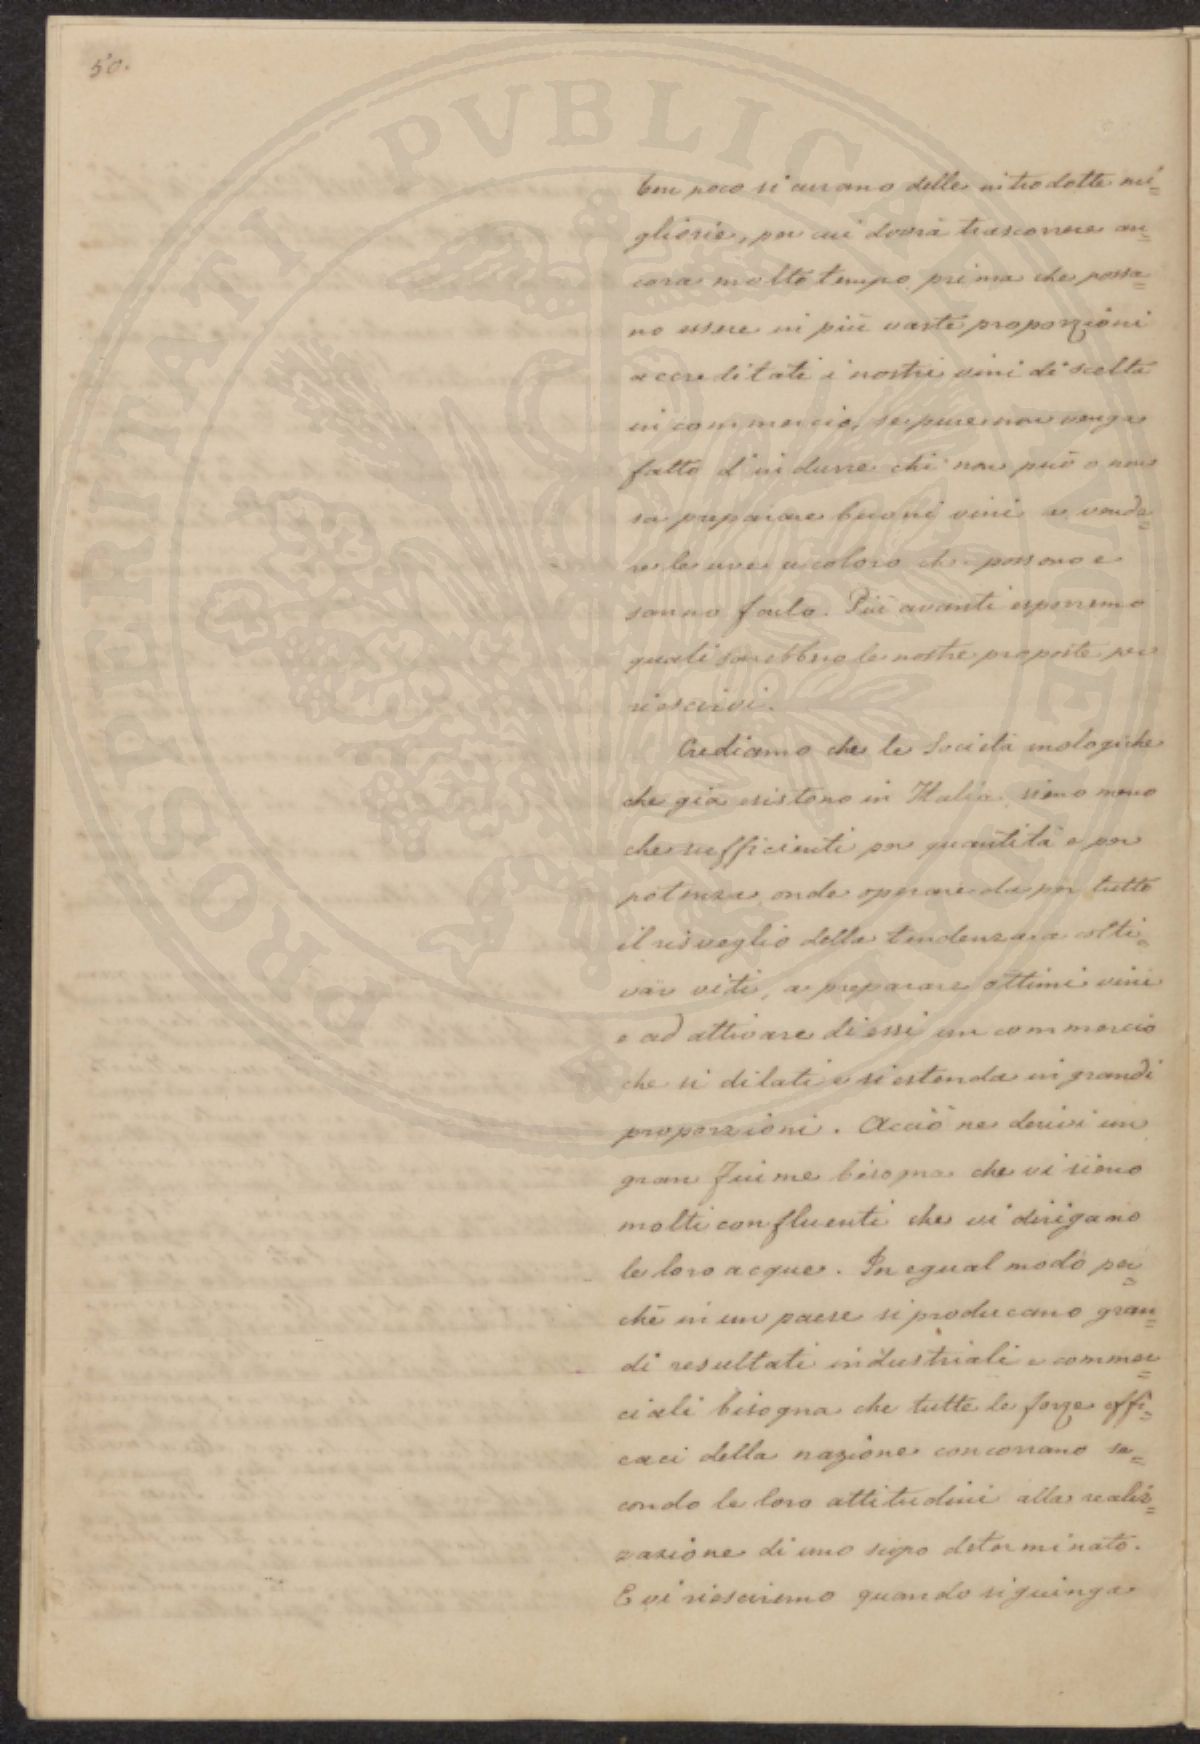 50.
PROSPERITATI PVBLICAE AVGENDAE
ben poco si curano delle introdotte mi=
gliorie, per cui dovrà trascorrere an=
cora molto tempo prima che possa=
no essere in più vaste proporzioni
accreditati i nostri vini di scelta
in commercio, seppure non venga
fatto d'indurre chi non può o non
sa preparare buoni vini a vende=
re le uve a coloro che possono e
sanno farlo. Più avanti esporremo
quali sarebbero le nostre proposte per
riescirvi.
Crediamo che le Società enologiche
che già esistono in Italia sieno meno
che sufficienti per quantità e per
potenza onde operare da per tutto
il risveglio della tendenza a colti=
var viti, a preparare ottimi vini
e ad attivare di essi un commercio
che si dilati e si estenda in grandi
proporzioni. Acciò ne derivi un
gran fiume bisogna che vi sieno
molti confluenti che vi dirigano
le loro acque. In egual modo per=
chè in un paese si producano gran=
di resultati industriali e commer=
ciali bisogna che tutte le forze effi=
caci della nazione concorrano se=
condo le loro attitudini alla realiz=
zazione di uno scopo determinato.
E vi riesciremo quando si giunga